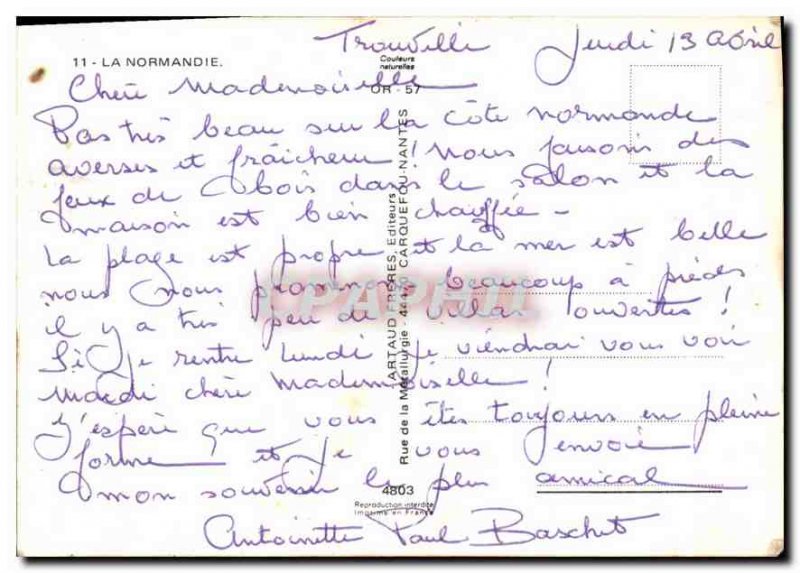 Trouville Jeudi 13 avril
11 - LA NORMANDIE.
Couleurs
naturelles
OR - 57
Chère Mademoiselle
Pas très beau sur la côte normande
averses et fraîcheur ! nous faisons des
feux de bois dans le salon et la
maison est bien chauffée -
La plage est propre et la mer est belle
nous nous promenons beaucoup à pieds
il y a très peu de villas ouvertes !
Si je rentre lundi je viendrai vous voir
mardi chère Mademoiselle !
J'espère que vous êtes toujours en pleine
forme et je vous envoie
mon souvenir le plus amical
Antoinette Paul Baschet
ARTAUD FRÈRES, Editeurs
Rue de la Métallurgie - 44 CARQUEFOU-NANTES
4803
Reproduction interdite
Imprimé en France
CPAPHIL